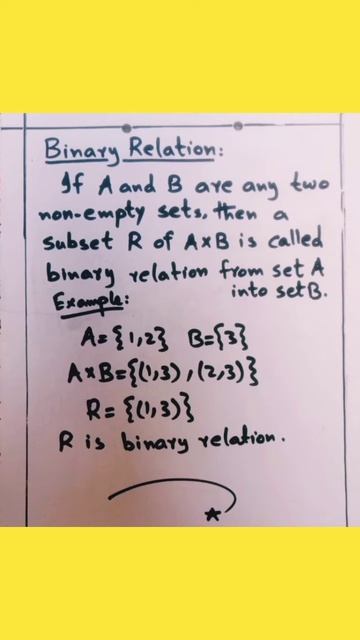 Binary Relation:
If A and B are any two
non-empty sets, then a
subset R of A×B is called
binary relation from set A
into set B.
Example:
A={1,2} B={3}
A×B={(1,3),(2,3)}
R={(1,3)}
R is binary relation.